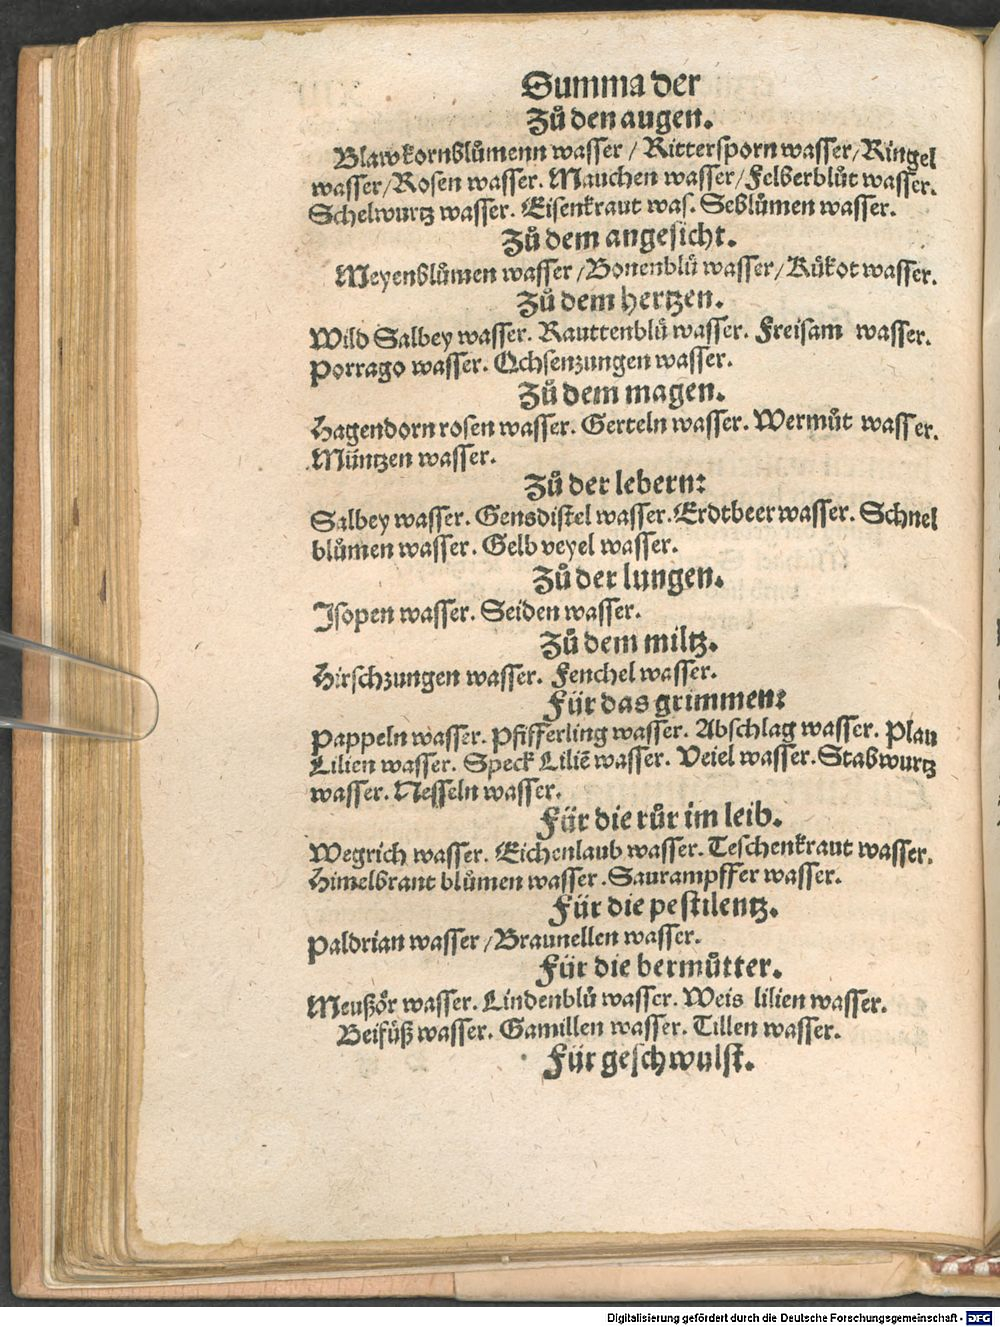 Summa der
Zů den augen.
Blawkornblůmenn wasser / Rittersporn wasser/Ringel
wasser/Rosen wasser. Mauchen wasser/Felberblůt wasser.
Schelwurtz wasser. Eisenkraut was. Seblůmen wasser.
Zů dem angesicht.
Meyenblůmen wasser /Bonenblů wasser/ Kůkot wasser.
Zů dem hertzen.
Wild Salbey wasser. Rauttenblů wasser. Freisam wasser.
Porrago wasser. Ochsenzungen wasser.
Zů dem magen.
Hagendorn rosen wasser. Gerteln wasser. Wermůt wasser.
Müntzen wasser.
Zů der lebern:
Salbey wasser. Gensdistel wasser. Erdtbeer wasser. Schnel
blůmen wasser. Gelb veyel wasser.
Zů der lungen.
Isopen wasser. Seiden wasser.
Zů dem miltz.
Hirschzungen wasser. Fenchel wasser.
Für das grimmen:
Pappeln wasser. Pfifferling wasser. Abschlag wasser. Plau
Lilien wasser. Speck Liliē wasser. Veiel wasser. Stabwurtz
wasser. Nesseln wasser.
Für die růr im leib.
Wegrich wasser. Eichenlaub wasser. Teschenkraut wasser.
Himelbrant blůmen wasser. Saurampffer wasser.
Für die pestilentz.
Paldrian wasser /Braunellen wasser.
Für die bermůtter.
Meußör wasser. Lindenblů wasser. Weis lilien wasser.
Beifůß wasser. Gamillen wasser. Tillen wasser.
Für geschwulst.
Digitalisierung gefördert durch die Deutsche Forschungsgemeinschaft - DFG